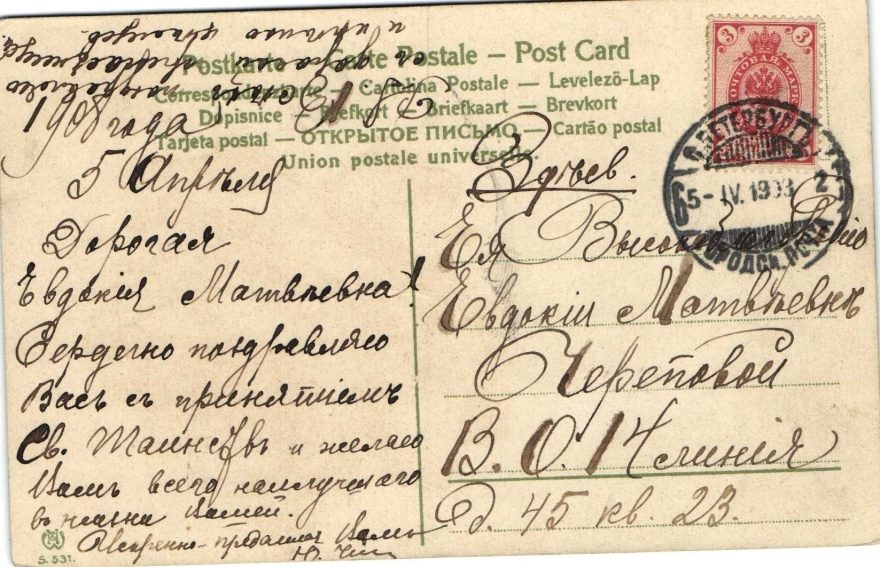 Postkarte – Carte Postale – Post Card
Correspondenzkarte – Cartolina Postale – Levelezö-Lap
Dopisnice – Brefkort – Briefkaart – Brevkort
Tarjeta postal – ОТКРЫТОЕ ПИСЬМО – Cartão postal
Union postale universelle.
1908 года
5 Апрѣля
Дорогая
Евдокія Матвѣевна!
Сердечно поздравляю
Васъ съ принятіемъ
Св. Таинствъ и желаю
Вамъ всего наилучшаго
въ жизни Вашей.
Искренно-преданная Вамъ
Ю.
S. 531.
3 3
ПОЧТОВАЯ МАРКА
С.ПЕТЕРБУРГЪ
5-IV.1908
2
ГОРОДСК. ПОЧТА
Здѣсь.
Ея
Евдокіи Матвѣевнѣ
Череповой
В. О. 14 линія
д. 45 кв. 23.